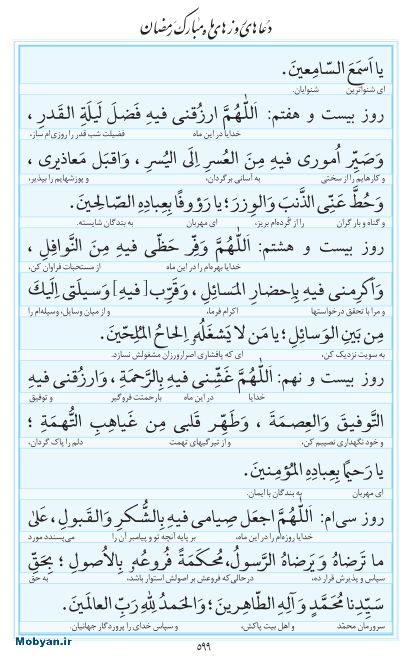 دعاهای روزهای ماه مبارک رمضان
یا اَسمَعَ السّامِعینَ.
ای شنواترین شنوایان.
روز بیست و هفتم: اَللّهُمَّ ارزُقنی فیهِ فَضلَ لَیلَةِ القَدرِ ،
خدایا در این ماه فضیلت شب قدر را روزی‌ام ساز،
وَصَیِّر اُموری فیهِ مِنَ العُسرِ اِلَی الیُسرِ ، وَاقبَل مَعاذیری ،
و کارهایم را از سختی به آسانی برگردان، و پوزشهایم را بپذیر،
وَحُطَّ عَنِّی الذَّنبَ وَالوِزرَ؛ یا رَؤوفًا بِعِبادِهِ الصّالِحینَ.
و گناه و بار گران را از گُرده‌ام بریز، ای مهربان به بندگان شایسته.
روز بیست و هشتم: اَللّهُمَّ وَفِّر حَظّی فیهِ مِنَ النَّوافِلِ ،
خدایا بهره‌ام را در این ماه از مستحبات فراوان کن،
وَاَکرِمنی فیهِ بِاِحضارِ المَسائِلِ ، وَقَرِّب [فیهِ] وَسیلَتی اِلَیکَ
و مرا با تحقق درخواستها اکرام فرما، و از میان وسایل، وسیله‌ام را
مِن بَینِ الوَسائِلِ ؛ یا مَن لا یَشغَلُهُ اِلحاحُ المُلِحّینَ.
به سویت نزدیک کن، ای که پافشاری اصرارورزان مشغولش نسازد.
روز بیست و نهم: اَللّهُمَّ غَشِّنی فیهِ بِالرَّحمَةِ ، وَارزُقنی فیهِ
خدایا در این ماه با رحمتت فروگیر و توفیق
التَّوفیقَ وَالعِصمَةَ ، وَطَهِّر قَلبی مِن غَیاهِبِ التُّهَمَةِ ؛
و خود نگهداری نصیبم کن، و از تیرگیهای تهمت دلم را پاک گردان،
یا رَحیمًا بِعِبادِهِ المُؤمِنینَ.
ای مهربان به بندگان با ایمان.
روز سی‌ام: اَللّهُمَّ اجعَل صِیامی فیهِ بِالشُّکرِ وَالقَبولِ، عَلی
خدایا روزه‌ام را در این ماه، بر پایه آنچه تو و پیامبر آن را می‌پسندد مورد
ما تَرضاهُ وَیَرضاهُ الرَّسولُ، مُحکَمَةً فُروعُهُ بِالاُصولِ ؛ بِحَقِّ
سپاس و پذیرش قرار ده، درحالی‌که فروعش بر اصولش استوار باشد، به حق
سَیِّدِنا مُحَمَّدٍ وَآلِهِ الطّاهِرینَ ؛ وَالحَمدُ لِلّهِ رَبِّ العالَمینَ.
سرورمان محمّد و اهل بیت پاکش، و سپاس خدای را پروردگار جهانیان.
۵۹۹
Mobyan.ir